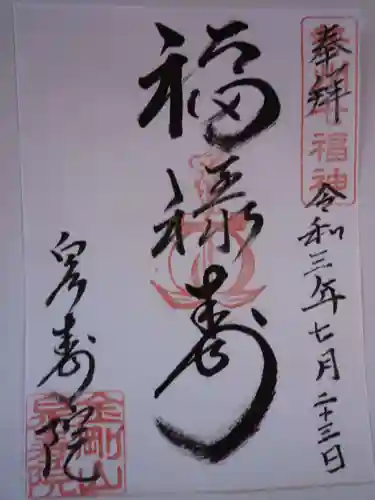 奉拝
令和三年七月二十三日
福禄寿
泉寿院